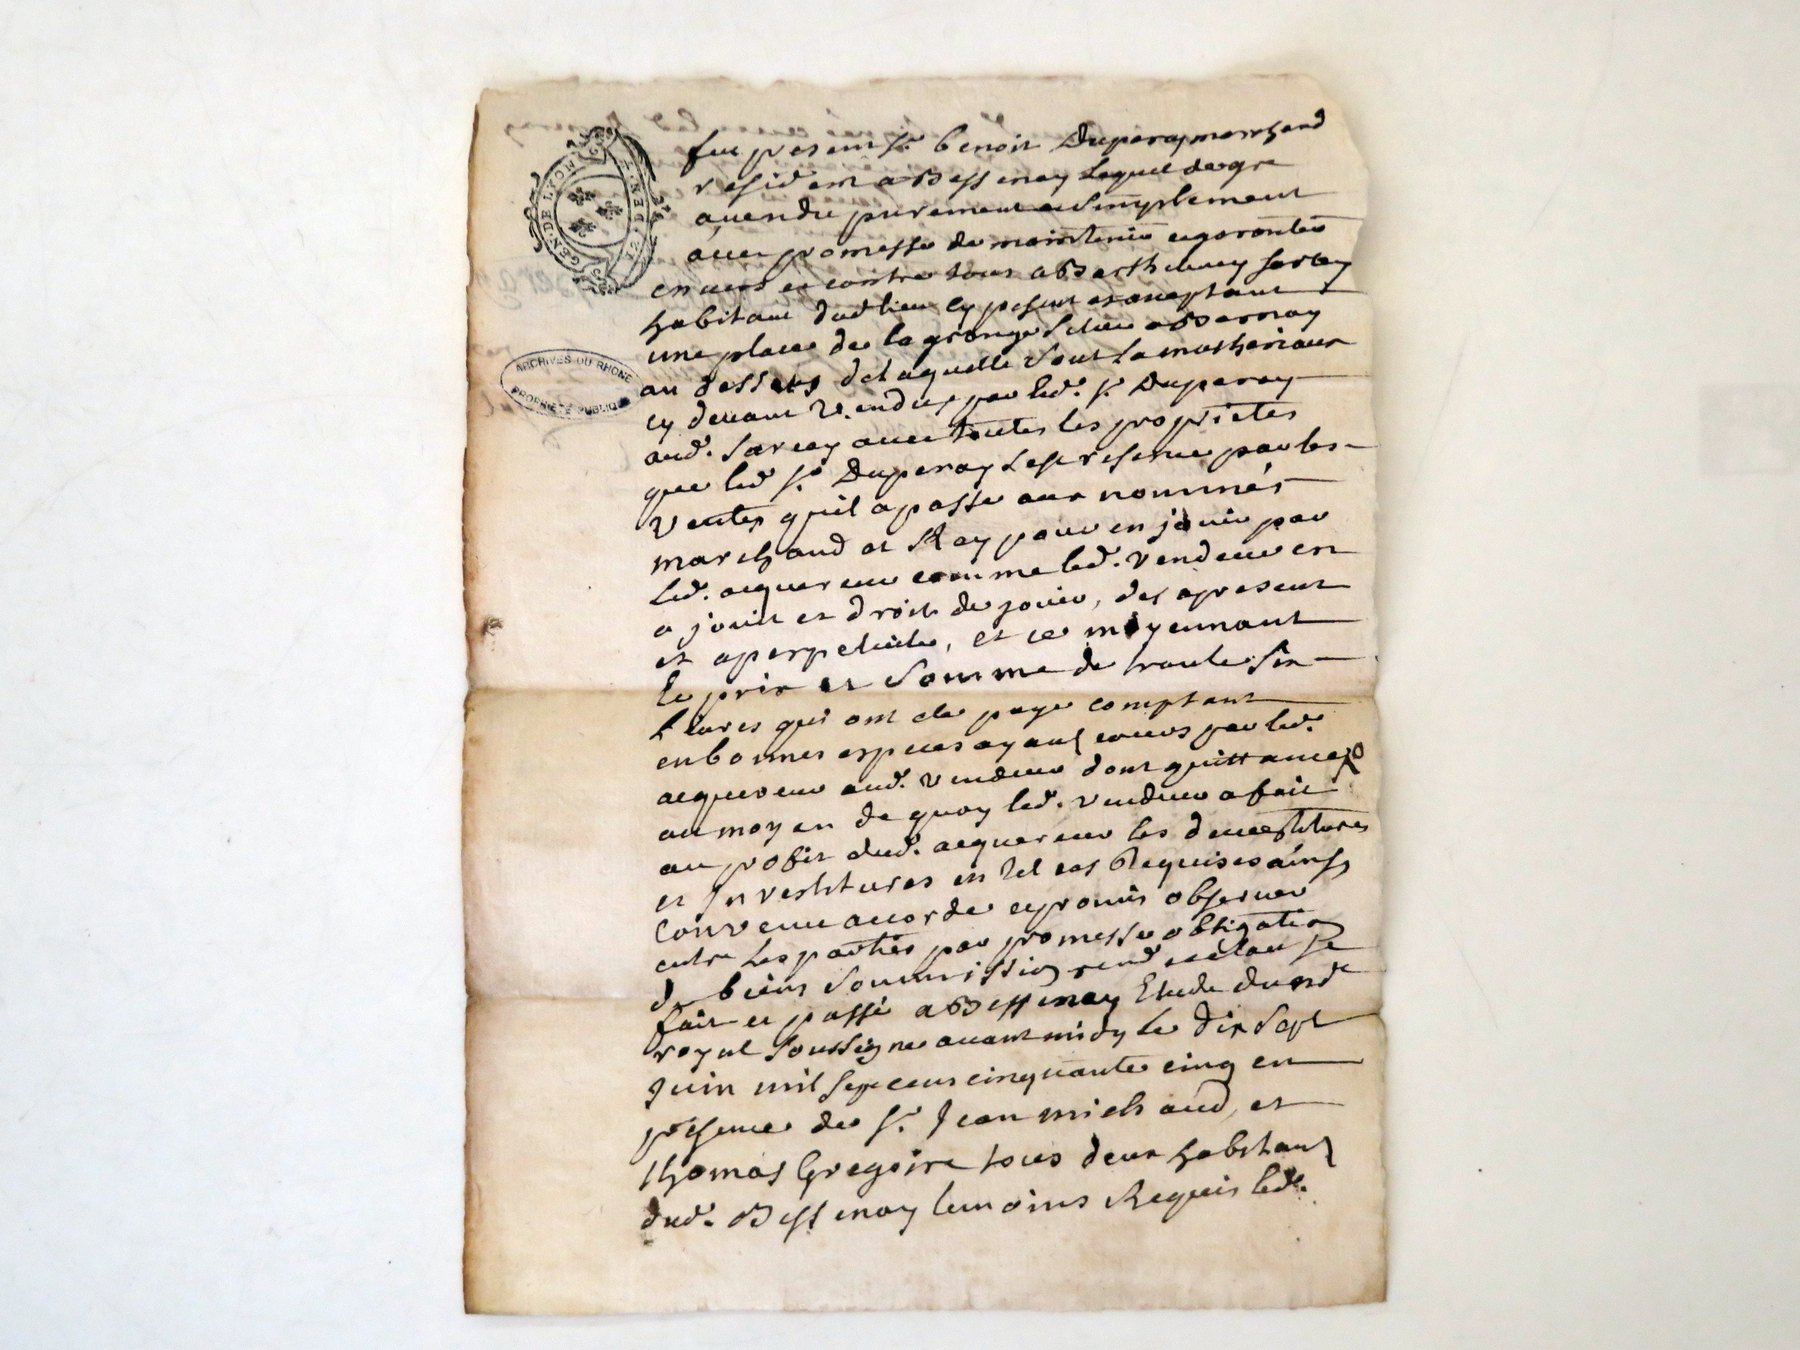 GEN. DE LYON
ARCHIVES DU RHONE
PROPRIÉTÉ PUBLIQUE
fut present sr. benoit Duperay marchand
resident a Bessenay lequel de gre
a vendu purement et simplement
avec promesse de maintenir et garentir
envers et contre tous a Barthelemy sarcey
habitant dud lieu cy present et acceptant
une place de la grange scitue a Bernay
au dessus de laquelle sont la matheriaux
cy devant vendus par led. sr. Duperay
aud. Sarcey avec toutes les proprietes
que led sr. Duperay sest reserve par les
ventes quil a passe aux nommés
marchand et Ray pour en jouir par
led. acquereur comme led. vendeur en
a jouit et droit de jouir, des apresent
et a perpetuite, et ce moyennant
le prix et somme de trante six
livres qui ont ete paye comptant
en bonnes especes ayant cours par led.
acquereur aud. vendeur dont quittance
au moyen de quoy led. vendeur a fait
au profit dud. acquereur les devestitures
et Investitures en tel cas Requises ainsy
convenu accorde et promis observer
entre les parties par promesse obligation
de biens soumission rend et clause
fait et passé a Bessenay Etude du nore
royal soussigne avant midy le dix sept
Juin mil sept cens cinquante cinq en
presence de sr. Jean michaud, et
thomas Gregoire tous deux habitans
dud. Bessenay temoins Requis led.